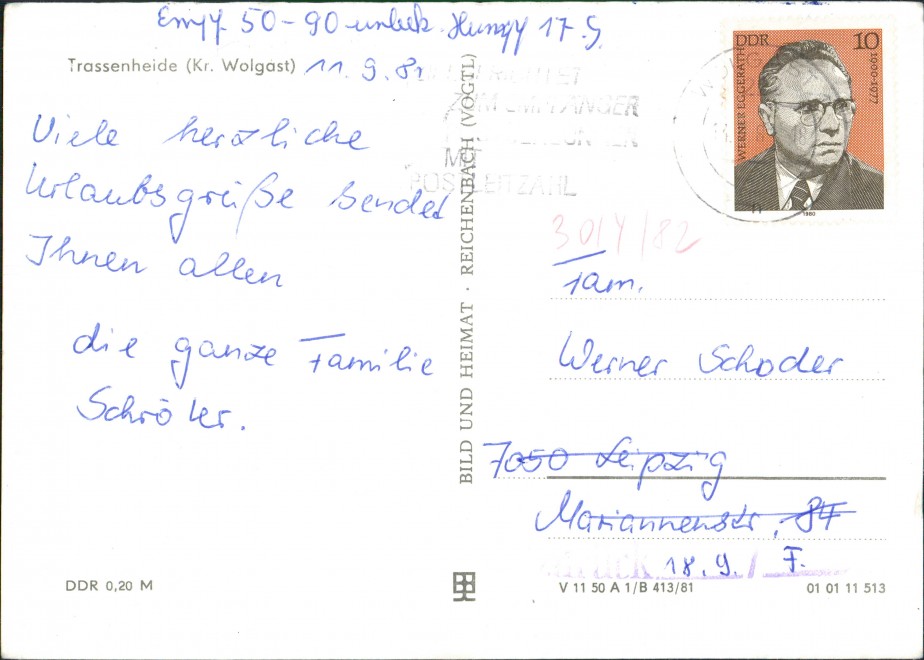 50-90 unbek. 17.9.
Trassenheide (Kr. Wolgast) 11.9.81
Viele herzliche
Urlaubsgrüße sendet
Ihnen allen
die ganze Familie
Schröter.
DDR 0,20 M
BILD UND HEIMAT · REICHENBACH (VOGTL)
ZUM EMPFÄNGER
POSTLEITZAHL
DDR 10
WERNER EGGERATH
1900-1977
1980
Fam.
Werner Schoder
7050 Leipzig
Mariannenstr. 84
zurück
18.9. F.
V 11 50 A 1/B 413/81
01 01 11 513